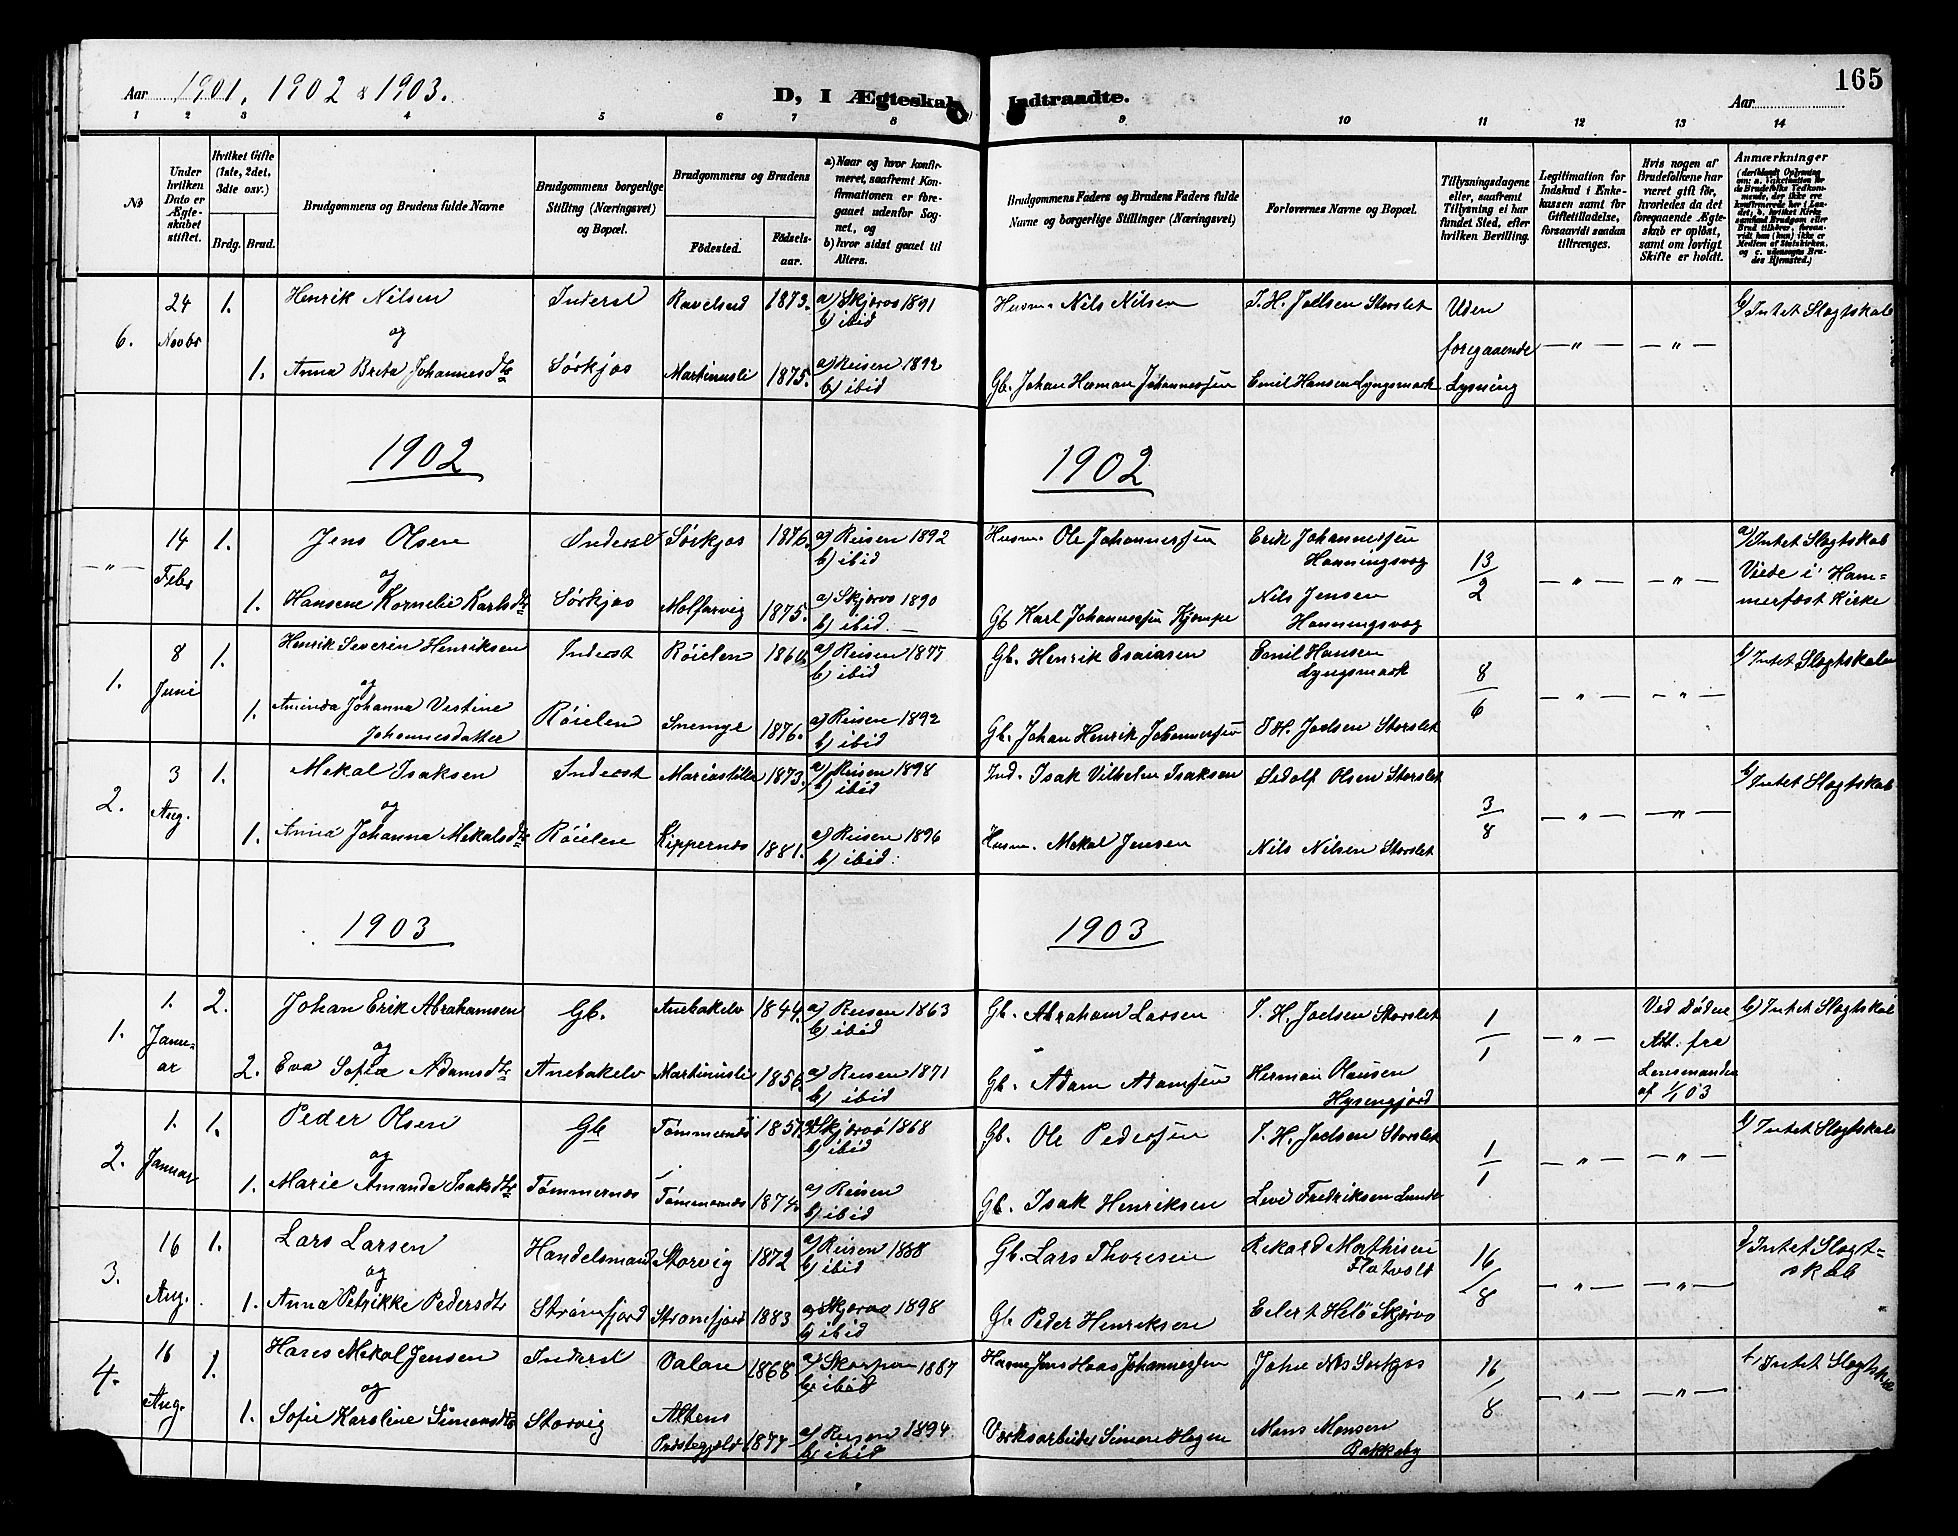 Aar 1901, 1902 & 1903.
D, I Ægteskab
Indtraadte.
Aar
165
1 2 3 4 5 6 7 8 9 10 11 12 13 14
No
Under hvilken Dato er Ægteskabet stiftet.
Hvilket Gifte (1ste, 2det, 3die osv.)
Brdg. Brud.
Brudgommens og Brudens fulde Navne
Brudgommens borgerlige Stilling (Næringsvei) og Bopæl.
Brudgommens og Brudens
Födested. Födselsaar.
a) Naar og hvor konfirmeret, saafremt Konfirmationen er foregaaet udenfor Sognet, og
b) hvor sidst gaaet til Alters.
Brudgommens Faders og Brudens Faders fulde Navne og borgerlige Stillinger (Næringsvei)
Forlovernes Navne og Bopæl.
Tillysningsdagene eller, saafremt Tillysning ei har fundet Sted, efter hvilken Bevilling.
Legitimation for Indskud i Enkekassen samt for Giftetilladelse, forsaavidt saadan tiltrænges.
Hvis nogen af Brudefolkene har været gift før, hvorledes da det foregaaende Ægteskab er oplöst, samt om lovligt Skifte er holdt.
Anmærkninger
6. 24 Novbr 1. Henrik Nilsen Inderst Ravelseid 1873. a) Skjærvø 1891 b) ibid Husm. Nils Nilsen I. H. Joelsen Storslet Uden b) Intet Slægtskab
og foregaaende — " — — " —
1. Anna Brita Johannesdtr Sørkjos Martinusli 1875. a) Reisen 1892 b) ibid Gb. Johan Herman Johannessen Emil Hansen Lyngsmark Lysning
1902
1902
— " — 14 Febr 1. Jens Olsen Inderst Sørkjos 1876. a) Reisen 1892 b) ibid Husm. Ole Johannessen Erik Johannessen Honningsvog 13/2 — " — — " — a) Intet Slægtskab Viede i Hammerfest Kirke
og
1. Hansene Kornelie Karlsdtr Sørkjos Molfarvig 1875. a) Skjærvø 1890 b) ibid. Gb. Karl Johannessen Kjempe Nils Jensen Honningsvog
1. 8 Juni 1. Henrik Severin Henriksen Inderst Röielen a) Reisen 1877 b) ibid Gb. Henrik Esaiasen Emil Hansen Lyngsmark 8/6 — " — — " — b) Intet Slægtskab
og
1. Aminda Johanna Vestine Johannesdatter Röielen Snemyr 1876. a) Reisen 1892 b) ibid Gb. Johan Henrik Johannessen I. H. Joelsen Storslet
2. 3 Aug. 1. Mekal Isaksen Inderst Mariastilla 1873. a) Reisen 1898 b) ibid Ind. Isak Vilhelm Isaksen Sedolf Olsen Storslet 3/8 — " — — " — b) Intet Slægtskab
og
1. Anna Johanna Mekalsdtr Röielen Kippernes 1881. a) Reisen 1896 b) ibid. Husm. Mekal Jensen Nils Nilsen Storslet
1903
1903
1. 1. Januar 2. Johan Erik Abrahamsen Gb. Anebakelv 1844. a) Reisen 1863 b) ibid Gb. Abraham Larsen I. H. Joelsen Storslet 1/1 — " — Ved Döden Att. fra Lensmanden af 1/1 03 b) Intet Slægtskab
og
2. Eva Sofie Adamsdtr Anebakelv Martinusli 1856. a) Reisen 1871 b) ibid Gb. Adam Adamssen Herman Olausen
2. 1. Januar 1. Peder Olsen Gb Tömmernes 1857. a) Skjærvö 1868 b) ibid Gb. Ole Pederssen I. H. Joelsen Storslet 1/1 — " — — " — b) Intet Slægtskab
og
1. Marie Amanda Isaksdtr Tömmernes Tömmernes 1874. a) Reisen b) ibid Gb. Isak Henriksen Levi Fredriksen Lunde
3. 16 Aug. 1. Lars Larsen Handelsmand Storvig 1872 a) Reisen 1888 b) ibid Gb. Lars Thoresen Rekard Mathisen Flatvold 16/8 — " — — " — b) Intet Slægtskab
og
1. Anna Petrikke Pedersdtr Strömfjord Strömfjord 1883 a) Skjærvø 1898 b) ibid Gb. Peder Henriksen Eilert Helö Skjærvø
4. 16 Aug. 1. Hans Mekal Jensen Inderst Valan 1868. 1887 b) ibid Husm. Jens Haas Johannessen Johan Nils Sørkjos 16/8 — " — — " — b) Intet Slægtskab
og
1. Sofie Karoline Simonsdtr Storvig Altens Præstegjeld 1877 a) Reisen 1894 b) ibid Værksarbeider Simon Hagen Mons Monsen Bakkeby